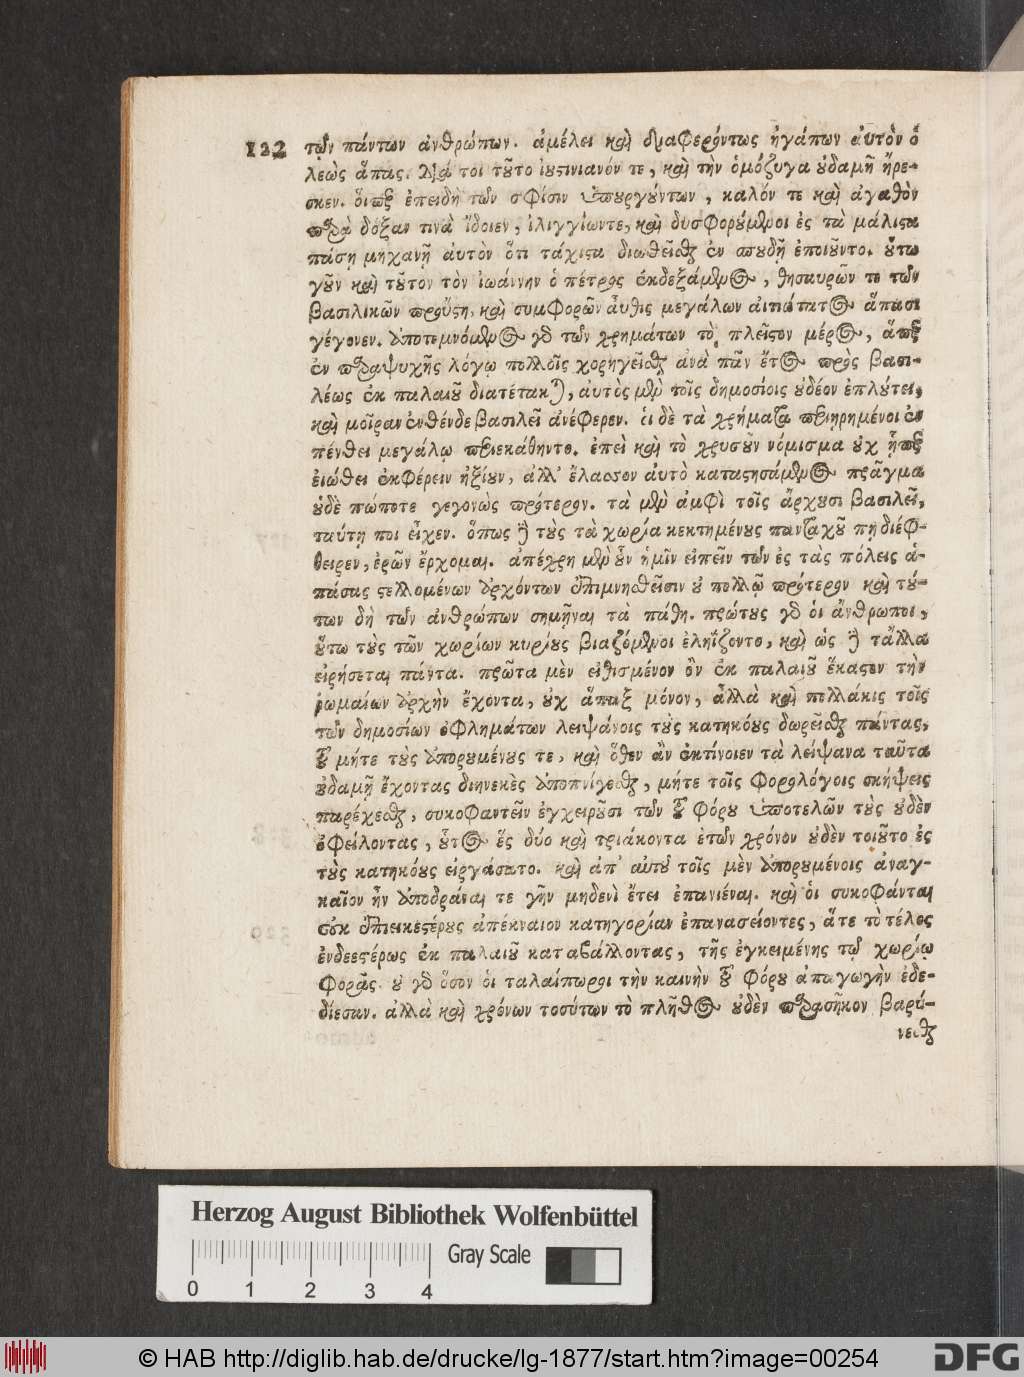 122 τῶν πάντων ἀνθρώπων. ἀμέλει καὶ διαφερόντως ἠγάπων αὐτὸν ὁ
λεὼς ἅπας. διά τοι τοῦτο ἰουστινιανόν τε, καὶ τὴν ὁμόζυγα οὐδαμῆ ἤρε-
σκεν. οἵπερ ἐπειδὴ τῶν σφίσιν ὑπουργούντων, καλόν τε καὶ ἀγαθὸν
παρὰ δόξαν τινὰ ἴδοιεν, ἰλιγγίωντε, καὶ δυσφορούμενοι ἐς τὰ μάλιστα
πάσῃ μηχανῇ αὐτὸν ὅτι τάχιστα διωθεῖσθαι ἐν σπουδῇ ἐποιοῦντο. οὕτω
γοῦν καὶ τοῦτον τὸν ἰωάννην ὁ πέτρος ἐκδεξάμενος, θησαυρῶν τε τῶν
βασιλικῶν προὔστη, καὶ συμφορῶν αὖθις μεγάλων αἰτιώτατος ἅπασι
γέγονεν. ἀποτεμνόμενος γὰρ τῶν χρημάτων τὸ πλεῖστον μέρος, ἅπερ
ἐν παραψυχῆς λόγῳ πολλοῖς χορηγεῖσθαι ἀνὰ πᾶν ἔτος πρὸς βασι-
λέως ἐκ παλαιοῦ διατέτακται, αὐτὸς μὲν τοῖς δημοσίοις οὐδέον ἐπλούτει,
καὶ μοῖραν ἐνθένδε βασιλεῖ ἀνέφερεν. οἱ δὲ τὰ χρήματα περιῃρημένοι ἐν
πένθει μεγάλῳ περιεκάθηντο. ἐπεὶ καὶ τὸ χρυσοῦν νόμισμα οὐχ ᾗπερ
εἰώθει ἐκφέρειν ἠξίουν, ἀλλ' ἔλασσον αὐτὸ καταστησάμενος πρᾶγμα
οὐδὲ πώποτε γεγονὼς πρότερον. τὰ μὲν ἀμφὶ τοῖς ἄρχουσι βασιλεῖ,
ταύτῃ ποι εἶχεν. ὅπως δὲ τοὺς τὰ χωρία κεκτημένους πανταχοῦ πη διέφ-
θειρεν, ἐρῶν ἔρχομαι. ἀπέχρη μὲν οὖν ἡμῖν εἰπεῖν τῶν ἐς τὰς πόλεις ἁ-
πάσας στελλομένων ἀρχόντων ἐπιμνησθεῖσιν οὐ πολλῷ πρότερον καὶ τού-
των δὴ τῶν ἀνθρώπων σημῆναι τὰ πάθη. πρώτους γὰρ οἱ ἄνθρωποι,
οὕτω τοὺς τῶν χωρίων κυρίους βιαζόμενοι ἐληΐζοντο, καὶ ὡς δὲ τἆλλα
εἰρήσεται πάντα. πρῶτα μὲν εἰθισμένον ὂν ἐκ παλαιοῦ ἕκαστον τὴν
ῥωμαίων ἀρχὴν ἔχοντα, οὐχ ἅπαξ μόνον, ἀλλὰ καὶ πολλάκις τοῖς
τῶν δημοσίων ὀφλημάτων λειψάνοις τοὺς κατηκόους δωρεῖσθαι πάντας,
τοῦ μήτε τοὺς ἀπορουμένους τε, καὶ ὅθεν ἂν ἐκτίνοιεν τὰ λείψανα ταῦτα
οὐδαμῆ ἔχοντας διηνεκὲς ἀποπνίγεσθαι, μήτε τοῖς φορολόγοις σκήψεις
παρέχεσθαι, συκοφαντεῖν ἐγχειροῦσι τῶν τοῦ φόρου ὑποτελῶν τοὺς οὐδὲν
ὀφείλοντας, οὗτος ἐς δύο καὶ τριάκοντα ἐτῶν χρόνον οὐδὲν τοιοῦτο ἐς
τοὺς κατηκόους εἰργάσατο. καὶ ἀπ' αὐτοῦ τοῖς μὲν ἀπορουμένοις ἀναγ-
καῖον ἦν ἀποδράναι τε γῆν μηδενὶ ἔτει ἐπανιέναι. καὶ οἱ συκοφάνται
τοὺς ἐπιεικεστέρους ἀπέκναιον κατηγορίαν ἐπανασείοντες, ἅτε τὸ τέλος
ἐνδεεστέρως ἐκ παλαιοῦ καταβάλλοντας, τῆς ἐγκειμένης τῷ χωρίῳ
φορᾶς. οὐ γὰρ ὅσον οἱ ταλαίπωροι τὴν καινὴν τοῦ φόρου ἀπαγωγὴν ἐδε-
δίεσαν. ἀλλὰ καὶ χρόνων τοσούτων τὸ πλῆθος οὐδὲν παρασῆκον βαρύ-
νεσθαι
Herzog August Bibliothek Wolfenbüttel
Gray Scale
0 1 2 3 4
© HAB http://diglib.hab.de/drucke/lg-1877/start.htm?image=00254
DFG